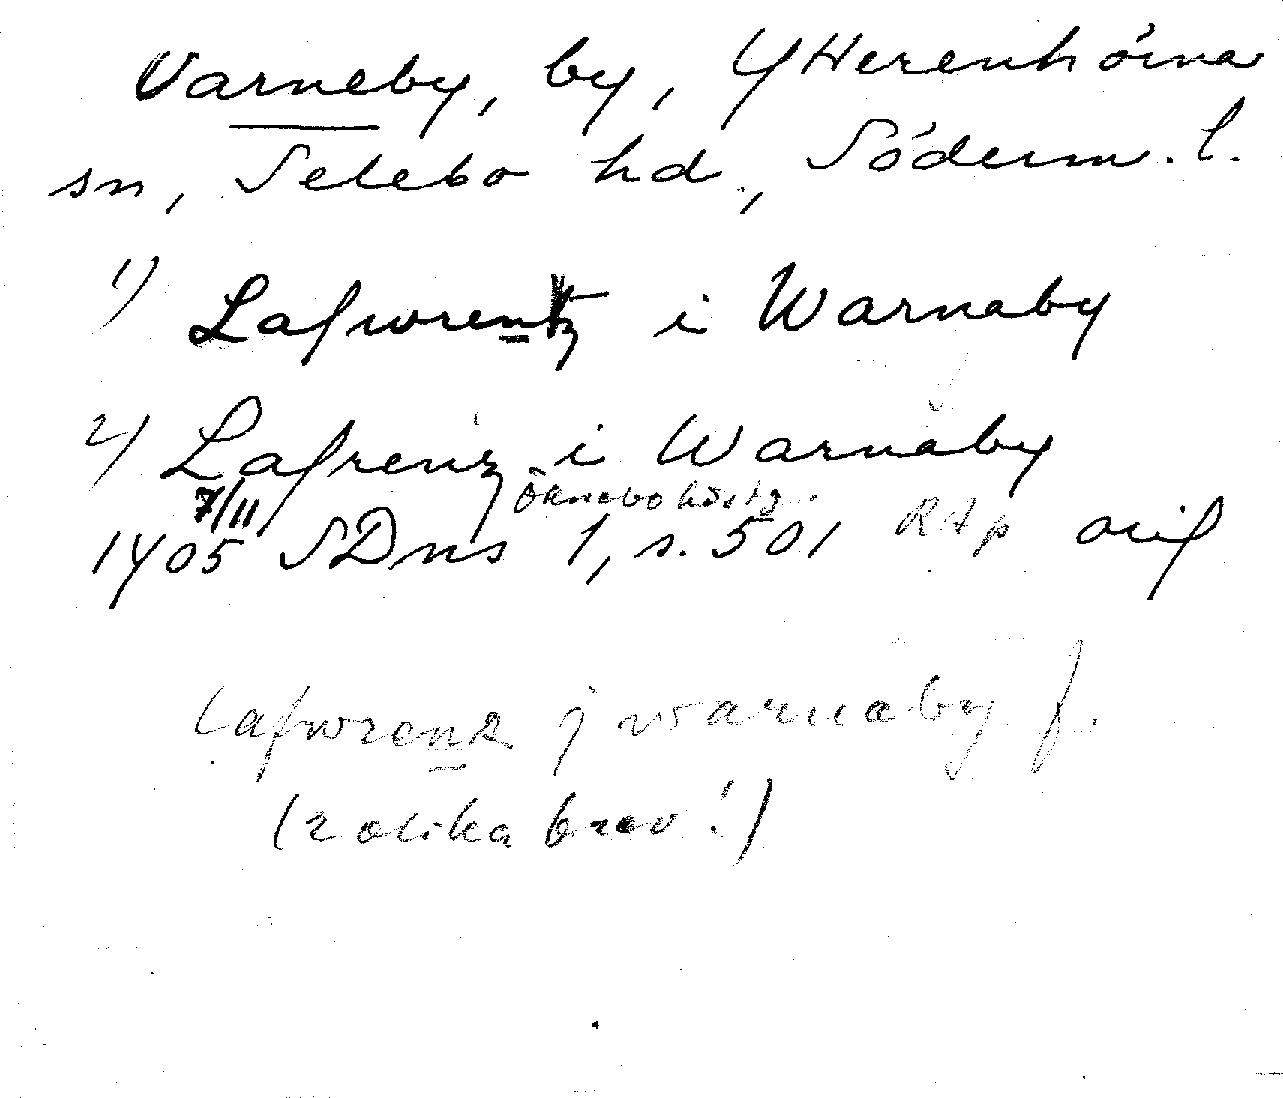 Varneby, by, Ytterenhörna
sn, Selebo hd, Söderm. l.
1) Lafwrentz i Warnaby
2) Lafrenz i Warnaby
Öknebo hästg.
7/11
1405 SDns 1, s. 501 RAp orig
Lafwrenz j warnaby
(2 olika brev!)